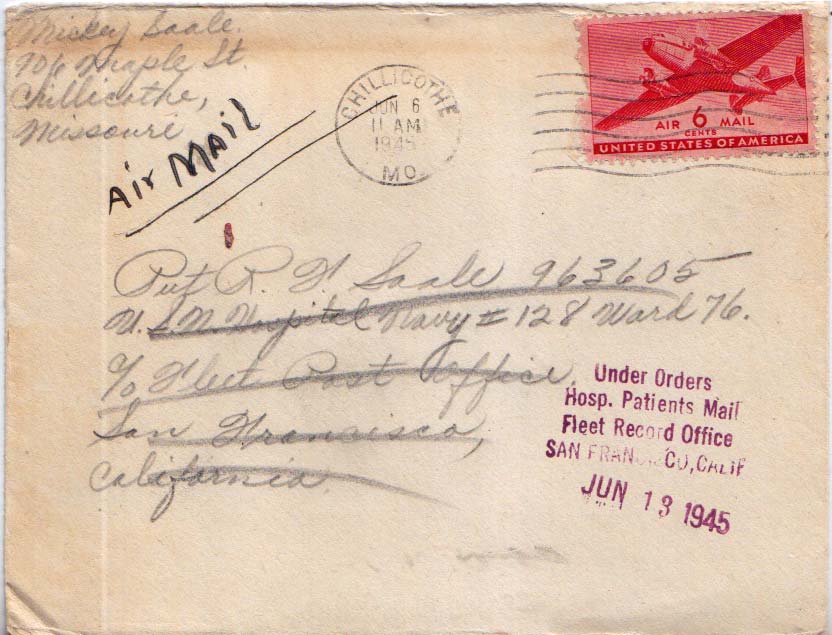 Mickey Saale.
906 Maple St.
Chillicothe,
Missouri
Air MAil
CHILLICOTHE
JUN 6
11 AM
1945
MO.
AIR 6 MAIL
CENTS
UNITED STATES OF AMERICA
Pvt R. W Saale 963605
U.S.N. Hospital Navy # 128 Ward 76.
c/o Fleet Post Office,
San Francisco,
California.
Under Orders
Hosp. Patients Mail
Fleet Record Office
SAN FRANCISCO, CALIF
JUN 13 1945